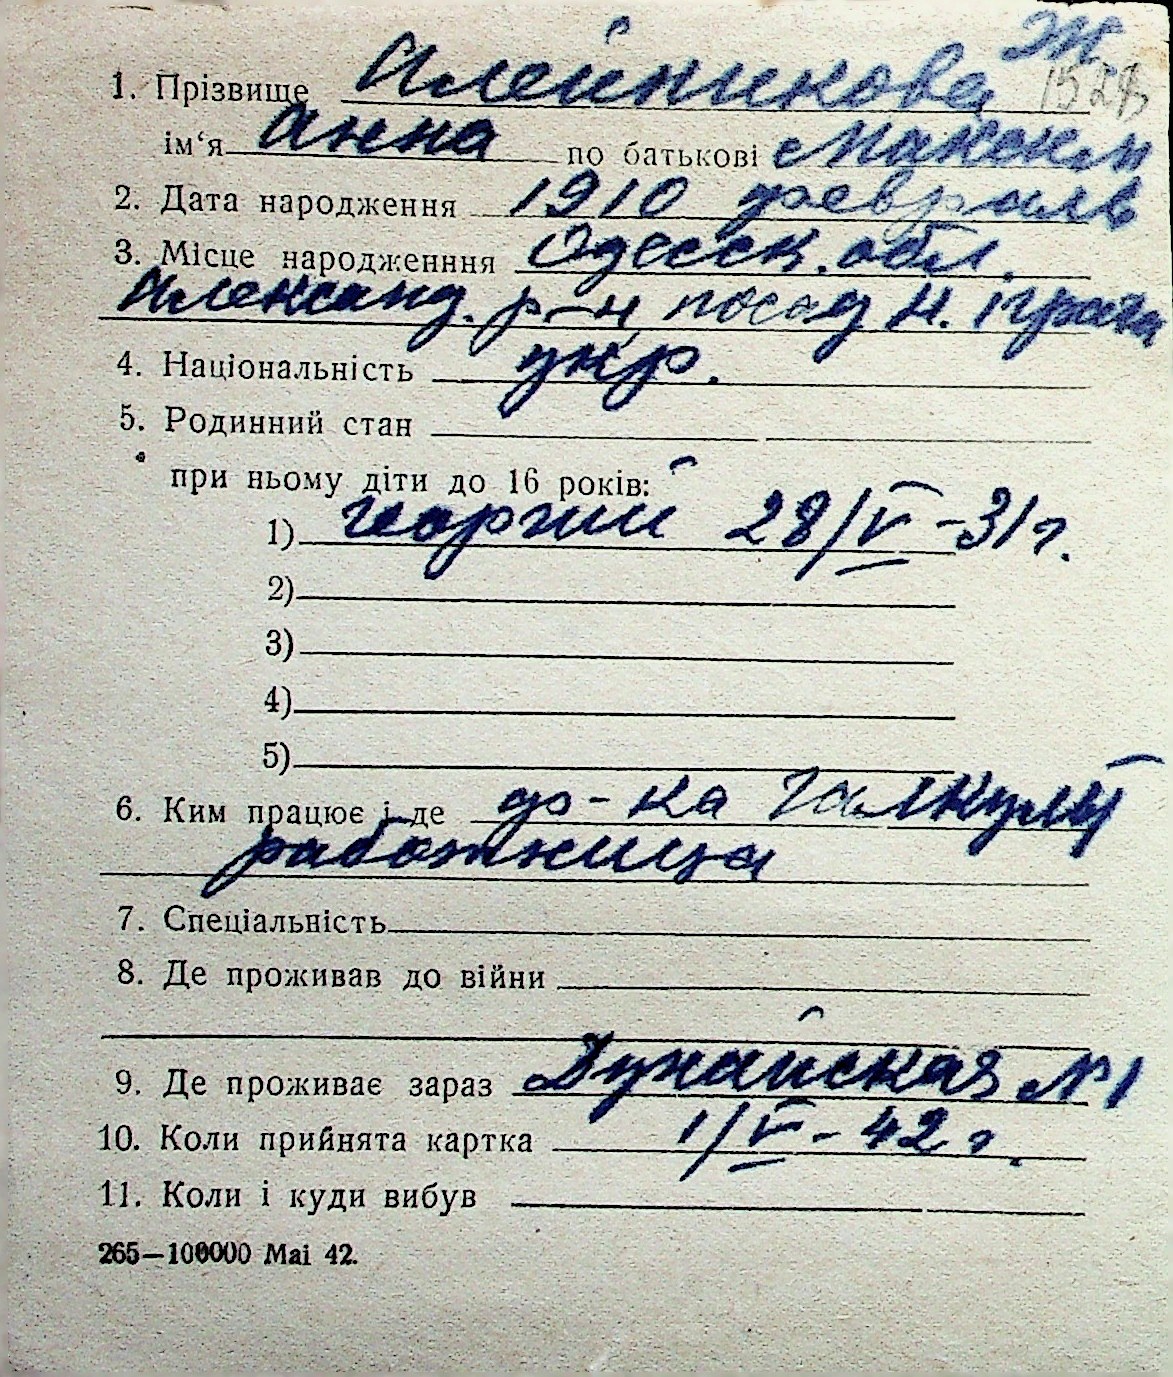 Ж
1. Прізвище Алейникова 1528
ім‘я Анна по батькові Максим
2. Дата народження 1910 февраль
3. Місце народженння Одесск. обл.
Александ. р-н, посад
4. Національність укр.
5. Родинний стан
при ньому діти до 16 років:
1) Георгий 28/V-31 г.
2)
3)
4)
5)
6. Ким працює і де ф-ка
работница
7. Спеціальність
8. Де проживав до війни
9. Де проживає зараз Дунайская № 1
10. Коли прийнята картка 1/V-42 г.
11. Коли і куди вибув
265—100000 Mai 42.